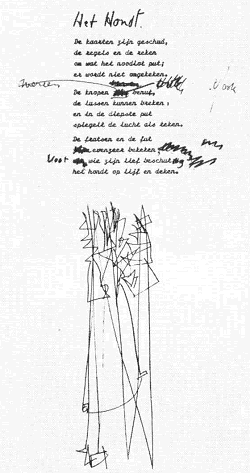 Het Hondt.
De kaarten zijn geschud,
de regels en de reken
om wat het noodlot put;
er wordt niet omgekeken.
De knopen benut,
de lussen kunnen breken;
en in de diepste put
spiegelt de lucht als teken.
De fratsen en de fut
evenzeer bekeken;
Voor wie zijn lief beschut
het hondt op lijf en deken.